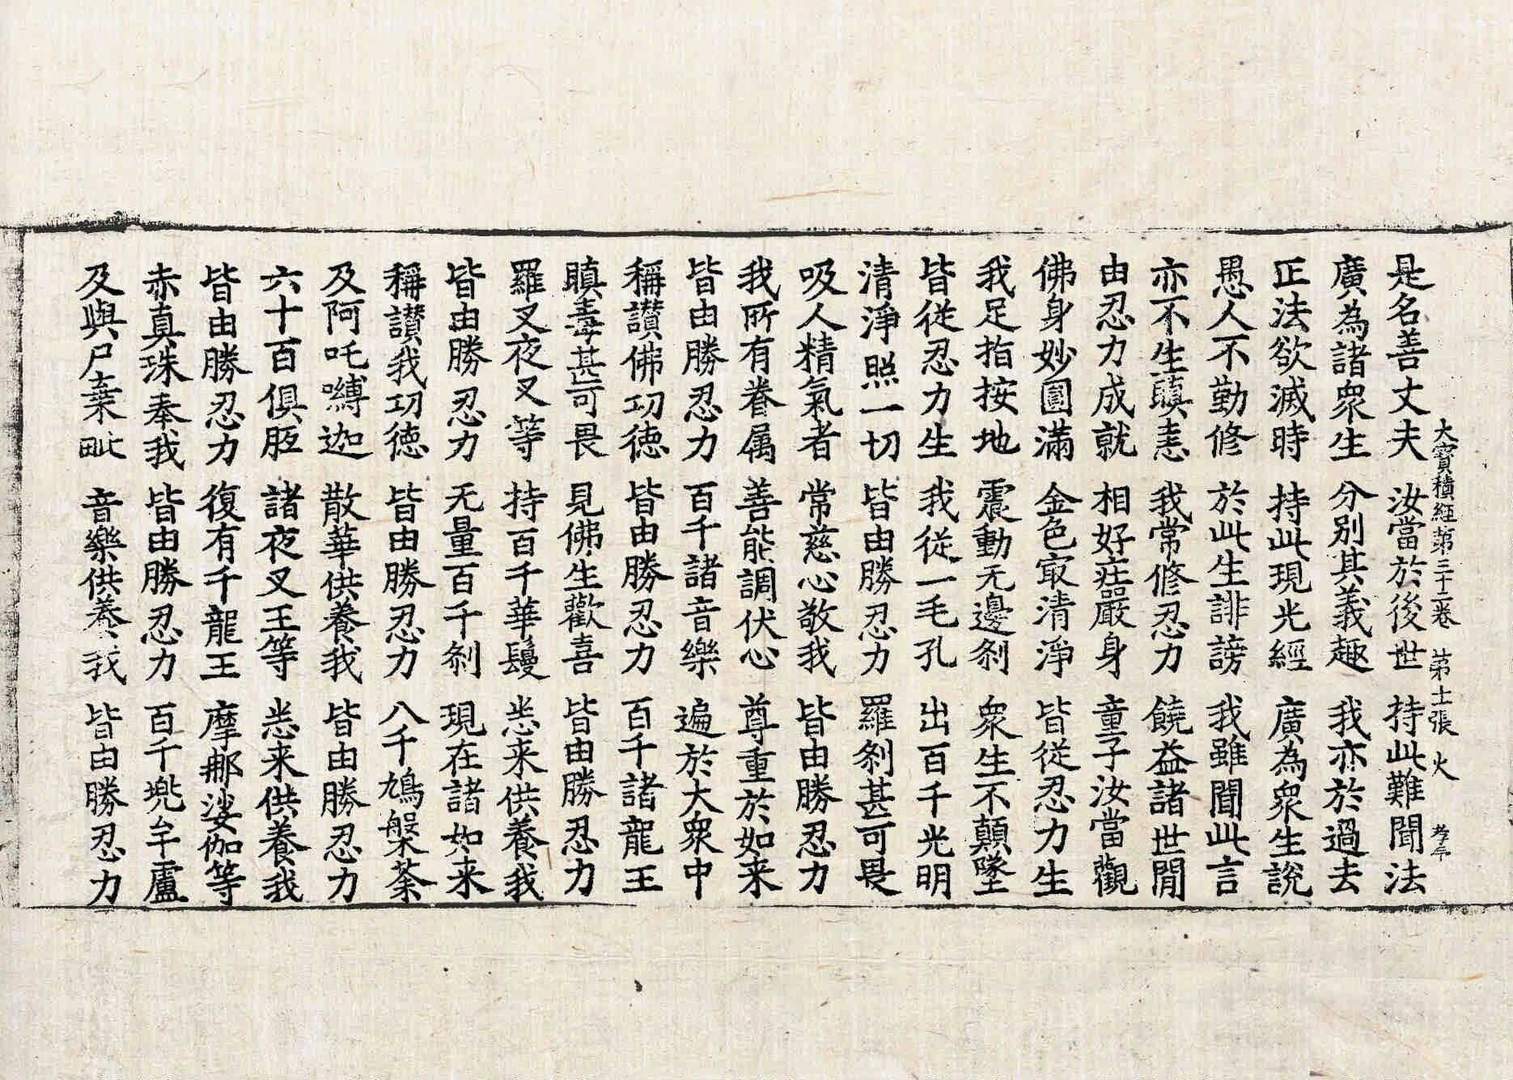 大寶積經第三十二卷 第十一張 火
是名善丈夫 汝當於後世 持此難聞法
廣為諸衆生 分別其義趣 我亦於過去
正法欲滅時 持此現光經 廣為衆生說
愚人不勤修 於此生誹謗 我雖聞此言
亦不生瞋恚 我常修忍力 饒益諸世閒
由忍力成就 相好莊嚴身 童子汝當觀
佛身妙圓滿 金色㝡清淨 皆從忍力生
我足指按地 震動无邊刹 衆生不顛墜
皆從忍力生 我從一毛孔 出百千光明
清淨照一切 皆由勝忍力 羅刹甚可畏
吸人精氣者 常慈心敬我 皆由勝忍力
我所有眷属 善能調伏心 尊重於如来
皆由勝忍力 百千諸音樂 遍於大衆中
稱讃佛功徳 皆由勝忍力 百千諸龍王
瞋毒甚可畏 見佛生歡喜 皆由勝忍力
羅叉夜叉等 持百千華鬘 悉来供養我
皆由勝忍力 无量百千刹 現在諸如来
稱讃我功徳 皆由勝忍力 八千鳩槃荼
及阿吒嚩迦 散華供養我 皆由勝忍力
六十百俱胝 諸夜叉王等 悉来供養我
皆由勝忍力 復有千龍王 摩那娑伽等
赤真珠奉我 皆由勝忍力 百千兠牟盧
及與尸棄毗 音樂供養我 皆由勝忍力